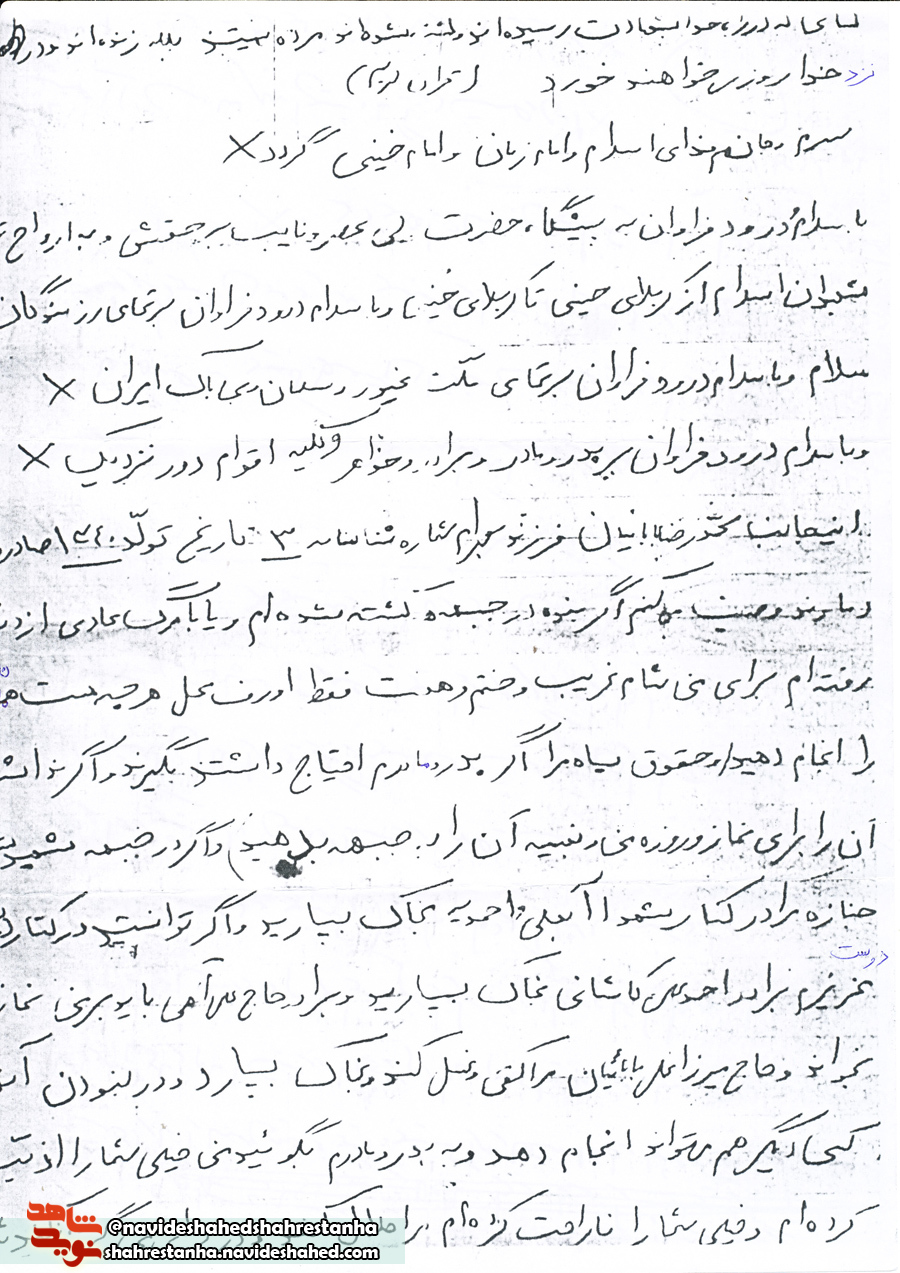 کسانی که در راه خدا بشهادت رسیده اند و کشته شده اند مرده نیستند بلکه زنده اند و در
نزد خدا روزی خواهند خورد (قرآن کریم)
سرم و جانم فدای اسلام و امام زمان و امام خمینی گردد ×
با سلام و درود فراوان به پیشگاه حضرت ولی عصر و نایب بر حقش و به ارواح
شهیدان اسلام از کربلای حسینی تا کربلای خمینی و با سلام و درود فراوان بر تمامی رزمندگان
سلام و با سلام و درود فراوان بر تمامی ملت غیور و مسلمان و بی باک ایران ×
و با سلام درود فراوان بر پدر و مادر و برادر و خواهر و کلیه اقوام دور نزدیک ×
اینجانب محمد رضا بابائیان فرزند بهرام شماره شناسنامه ۳ تاریخ تولّد ۱۳۴۰ صادره
وصیت میکنم اگر بنده در جبهه کشته شده ام و یا با مرگ عادی از
رفته ام برای من شام غریب و ختم و هفت فقط اورف محل هر چه هست
را انجام دهید و حقوق سپاه مرا اگر پدر و مادرم احتیاج داشتند بگیرند و اگر نداشتند
آن را برای نماز و روزه من و بقیه آن را به جبهه بدهید و اگر در جبهه شهید
جنازه مرا در کنار شهدا بخاک بسپارید و اگر توانستید در کنار
دوست
عزیزم برادر احمد علی کاشانی بخاک بسپارید و برادر حاج بر من نماز
بخواند و حاج میرزا علی بابائیان مرا کفن و غسل کند و بخاک بسپارد و در نبودن
کسی دیگر هم میتواند انجام دهد و به پدر و مادرم بگوئید من خیلی شما را اذیت
کرده ام و خیلی شما را ناراحت کرده ام مرا حلال کنید
نوید شاهد
@navideshahedshahrestanha
shahrestanha.navideshahed.com